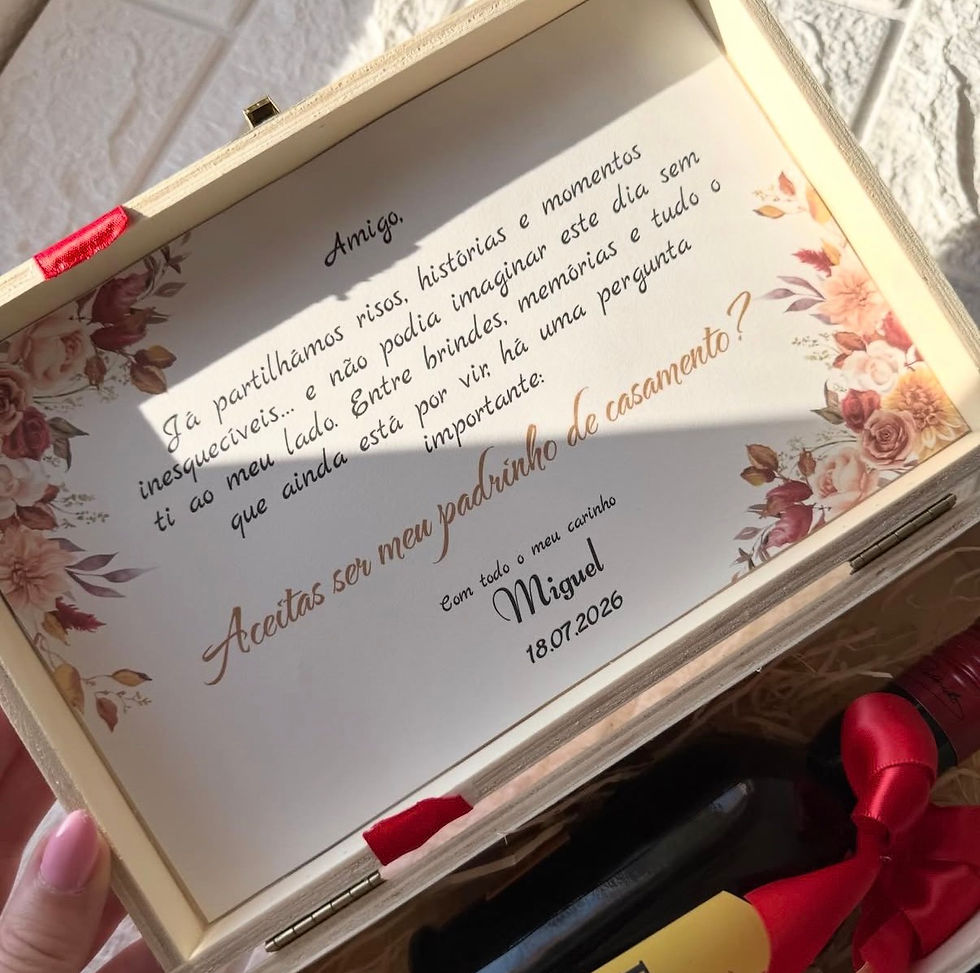 Amigo,
Já partilhámos risos, histórias e momentos
inesquecíveis... e não podia imaginar este dia sem
ti ao meu lado. Entre brindes, memórias e tudo o
que ainda está por vir, há uma pergunta
importante:
Aceitas ser meu padrinho de casamento?
Com todo o meu carinho
Miguel
18.07.2026